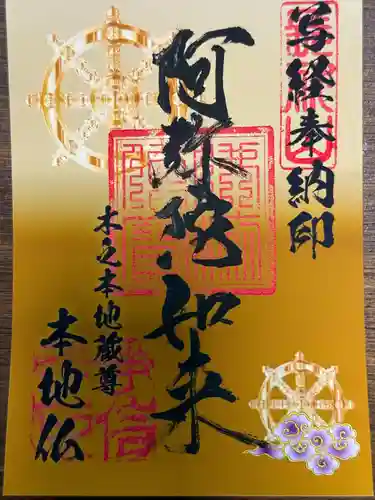 写経奉納印
阿弥陀如来
木之本地蔵尊
本地仏